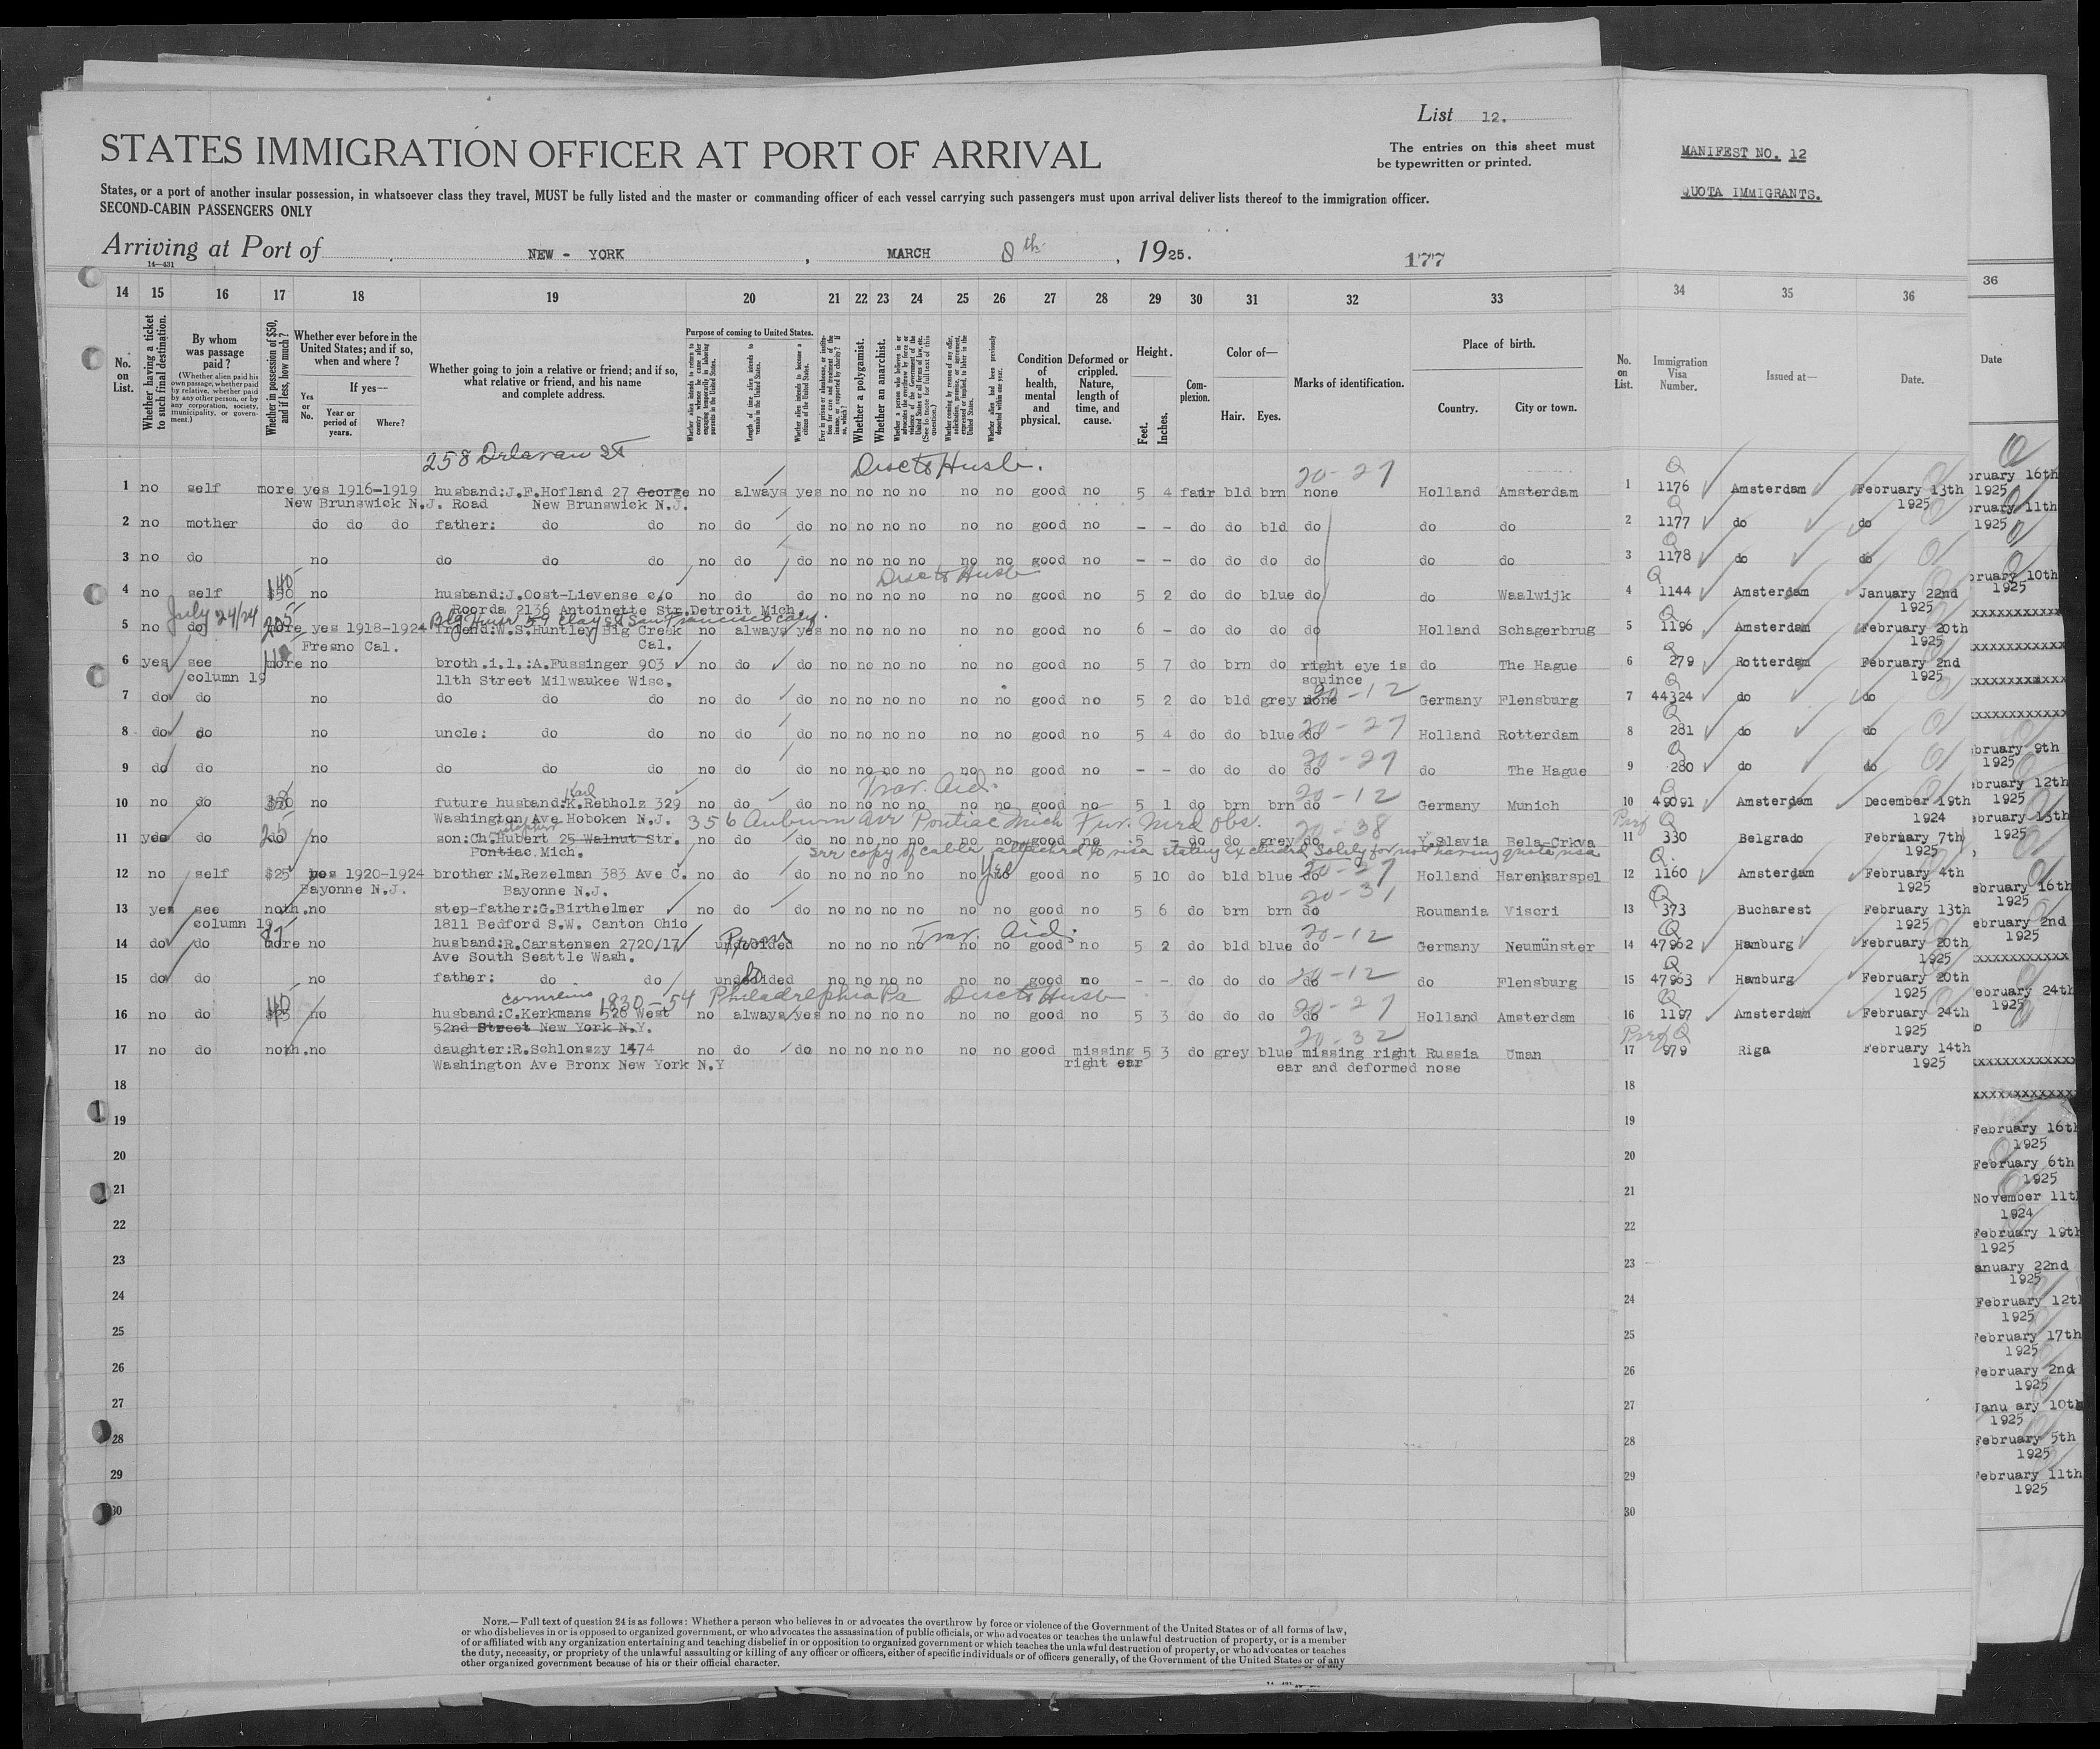 List 12.
STATES IMMIGRATION OFFICER AT PORT OF ARRIVAL
The entries on this sheet must be typewritten or printed.
MANIFEST NO. 12
QUOTA IMMIGRANTS.
States, or a port of another insular possession, in whatsoever class they travel, MUST be fully listed and the master or commanding officer of each vessel carrying such passengers must upon arrival deliver lists thereof to the immigration officer.
SECOND-CABIN PASSENGERS ONLY
Arriving at Port of NEW - YORK , MARCH 8th , 1925. 177
14—431
14 15 16 17 18 19 20 21 22 23 24 25 26 27 28 29 30 31 32 33 34 35 36 36
No. on List.
Whether having a ticket to such final destination.
By whom was passage paid?
(Whether alien paid his own passage, whether paid by relative, whether paid by any other person, or by any corporation, society, municipality, or government.)
Whether in possession of $50, and if less, how much?
Whether ever before in the United States; and if so, when and where?
If yes—
Yes or No.
Year or period of years.
Where?
Whether going to join a relative or friend; and if so, what relative or friend, and his name and complete address.
Purpose of coming to United States.
Length of time alien intends to remain in the United States.
Whether alien intends to become a citizen of the United States.
Whether a polygamist.
Whether an anarchist.
Condition of health, mental and physical.
Deformed or crippled. Nature, length of time, and cause.
Height.
Feet. Inches.
Complexion.
Color of—
Hair. Eyes.
Marks of identification.
Place of birth.
Country. City or town.
No. on List.
Immigration Visa Number.
Issued at—
Date.
Date
258 Delavan St Disc to Husb. 20-27
1 no self more yes 1916-1919 husband:J.F.Hofland 27 George no always yes no no no no no no good no 5 4 fair bld brn none Holland Amsterdam 1 1176 Amsterdam February 13th 1925
New Brunswick N.J. Road New Brunswick N.J.
2 no mother do do do father: do do no do do no no no no no no good no - - do do bld do do do 2 1177 do do
3 no do no do do do no do do no no no no no no good no - - do do do do do do 3 1178 do do
$40 Disc to Husb
4 no self $50 no husband:J.Oost-Lievense c/o no do do no no no no no no good no 5 2 do do blue do do Waalwijk 4 1144 Amsterdam January 22nd 1925
Roorda 2136 Antoinette Str.Detroit Mich.
July 24/24 205
5 no do more yes 1918-1924 friend:W.S.Huntley Big Creek no always yes no no no no no no good no 6 - do do do do Holland Schagerbrug 5 1196 Amsterdam February 20th 1925
Fresno Cal. Cal.
6 yes see more no broth.i.l.:A.Fussinger 903 no do do no no no no no no good no 5 7 do brn do right eye is do The Hague 6 279 Rotterdam February 2nd 1925
column 19 11th Street Milwaukee Wisc. squince
20-12
7 do do no do do do no do do no no no no no no good no 5 2 do bld grey none Germany Flensburg 7 44324 do do
20-27
8 do do no uncle: do do no do do no no no no no no good no 5 4 do do blue do Holland Rotterdam 8 281 do do
20-27
9 do do no do do do no do do no no no no no no good no - - do do do do do The Hague 9 280 do do
Karl Trav. Aid. 20-12
10 no do $50 no future husband:K.Rebholz 329 no do do no no no no no no good no 5 1 do brn brn do Germany Munich 10 49091 Amsterdam December 19th 1924
Washington Ave Hoboken N.J. 356 Auburn Ave Pontiac Mich Fur. Med Obs. 20-38
11 yes do do no son:Ch.Hubert 25 Walnut Str. no do do no no no no no no good no 5 - do do grey do Y.Slavia Bela-Crkva 11 330 Belgrado February 7th 1925
Pontiac Mich. See copy of cable attached to visa stating excluded solely for not having quota visa
Yes 20-27
12 no self $25 yes 1920-1924 brother:M.Rezelman 383 Ave C. no do do no no no no no no good no 5 10 do bld blue do Holland Harenkarspel 12 1160 Amsterdam February 4th 1925
Bayonne N.J. Bayonne N.J. 20-31
13 yes see noth.no step-father:G.Birthelmer no do do no no no no no no good no 5 6 do brn brn do Roumania Viscri 13 373 Bucharest February 13th 1925
column 19 1811 Bedford S.W. Canton Ohio
Trav. Aid. 20-12
14 do do more no husband:R.Carstensen 2720/17 undecided no no no no no no good no 5 2 do bld blue do Germany Neumünster 14 47962 Hamburg February 20th 1925
Ave South Seattle Wash.
20-12
15 do do no father: do do undecided no no no no no no good no - - do do do do do Flensburg 15 47963 Hamburg February 20th 1925
1830-54 Philadelphia Pa Disc to Husb 20-27
16 no do $25 no husband:C.Kerkmans 526 West no always yes no no no no no no good no 5 3 do do do do Holland Amsterdam 16 1197 Amsterdam February 24th 1925
52nd Street New York N.Y. 20-32
17 no do noth.no daughter:R.Schlonszy 1474 no do do no no no no no no good missing 5 3 do grey blue missing right Russia Uman 17 979 Riga February 14th 1925
Washington Ave Bronx New York N.Y right ear ear and deformed nose
18 18
19 19
20 20
21 21
22 22
23 23
24 24
25 25
26 26
27 27
28 28
29 29
30 30
NOTE.—Full text of question 24 is as follows: Whether a person who believes in or advocates the overthrow by force or violence of the Government of the United States or of all forms of law,
or who disbelieves in or is opposed to organized government, or who advocates the assassination of public officials, or who advocates or teaches the unlawful destruction of property, or is a member
of or affiliated with any organization entertaining and teaching disbelief in or opposition to organized government or which teaches the unlawful destruction of property, or who advocates or teaches
the duty, necessity, or propriety of the unlawful assaulting or killing of any officer or officers, either of specific individuals or of officers generally, of the Government of the United States or of any
other organized government because of his or their official character.